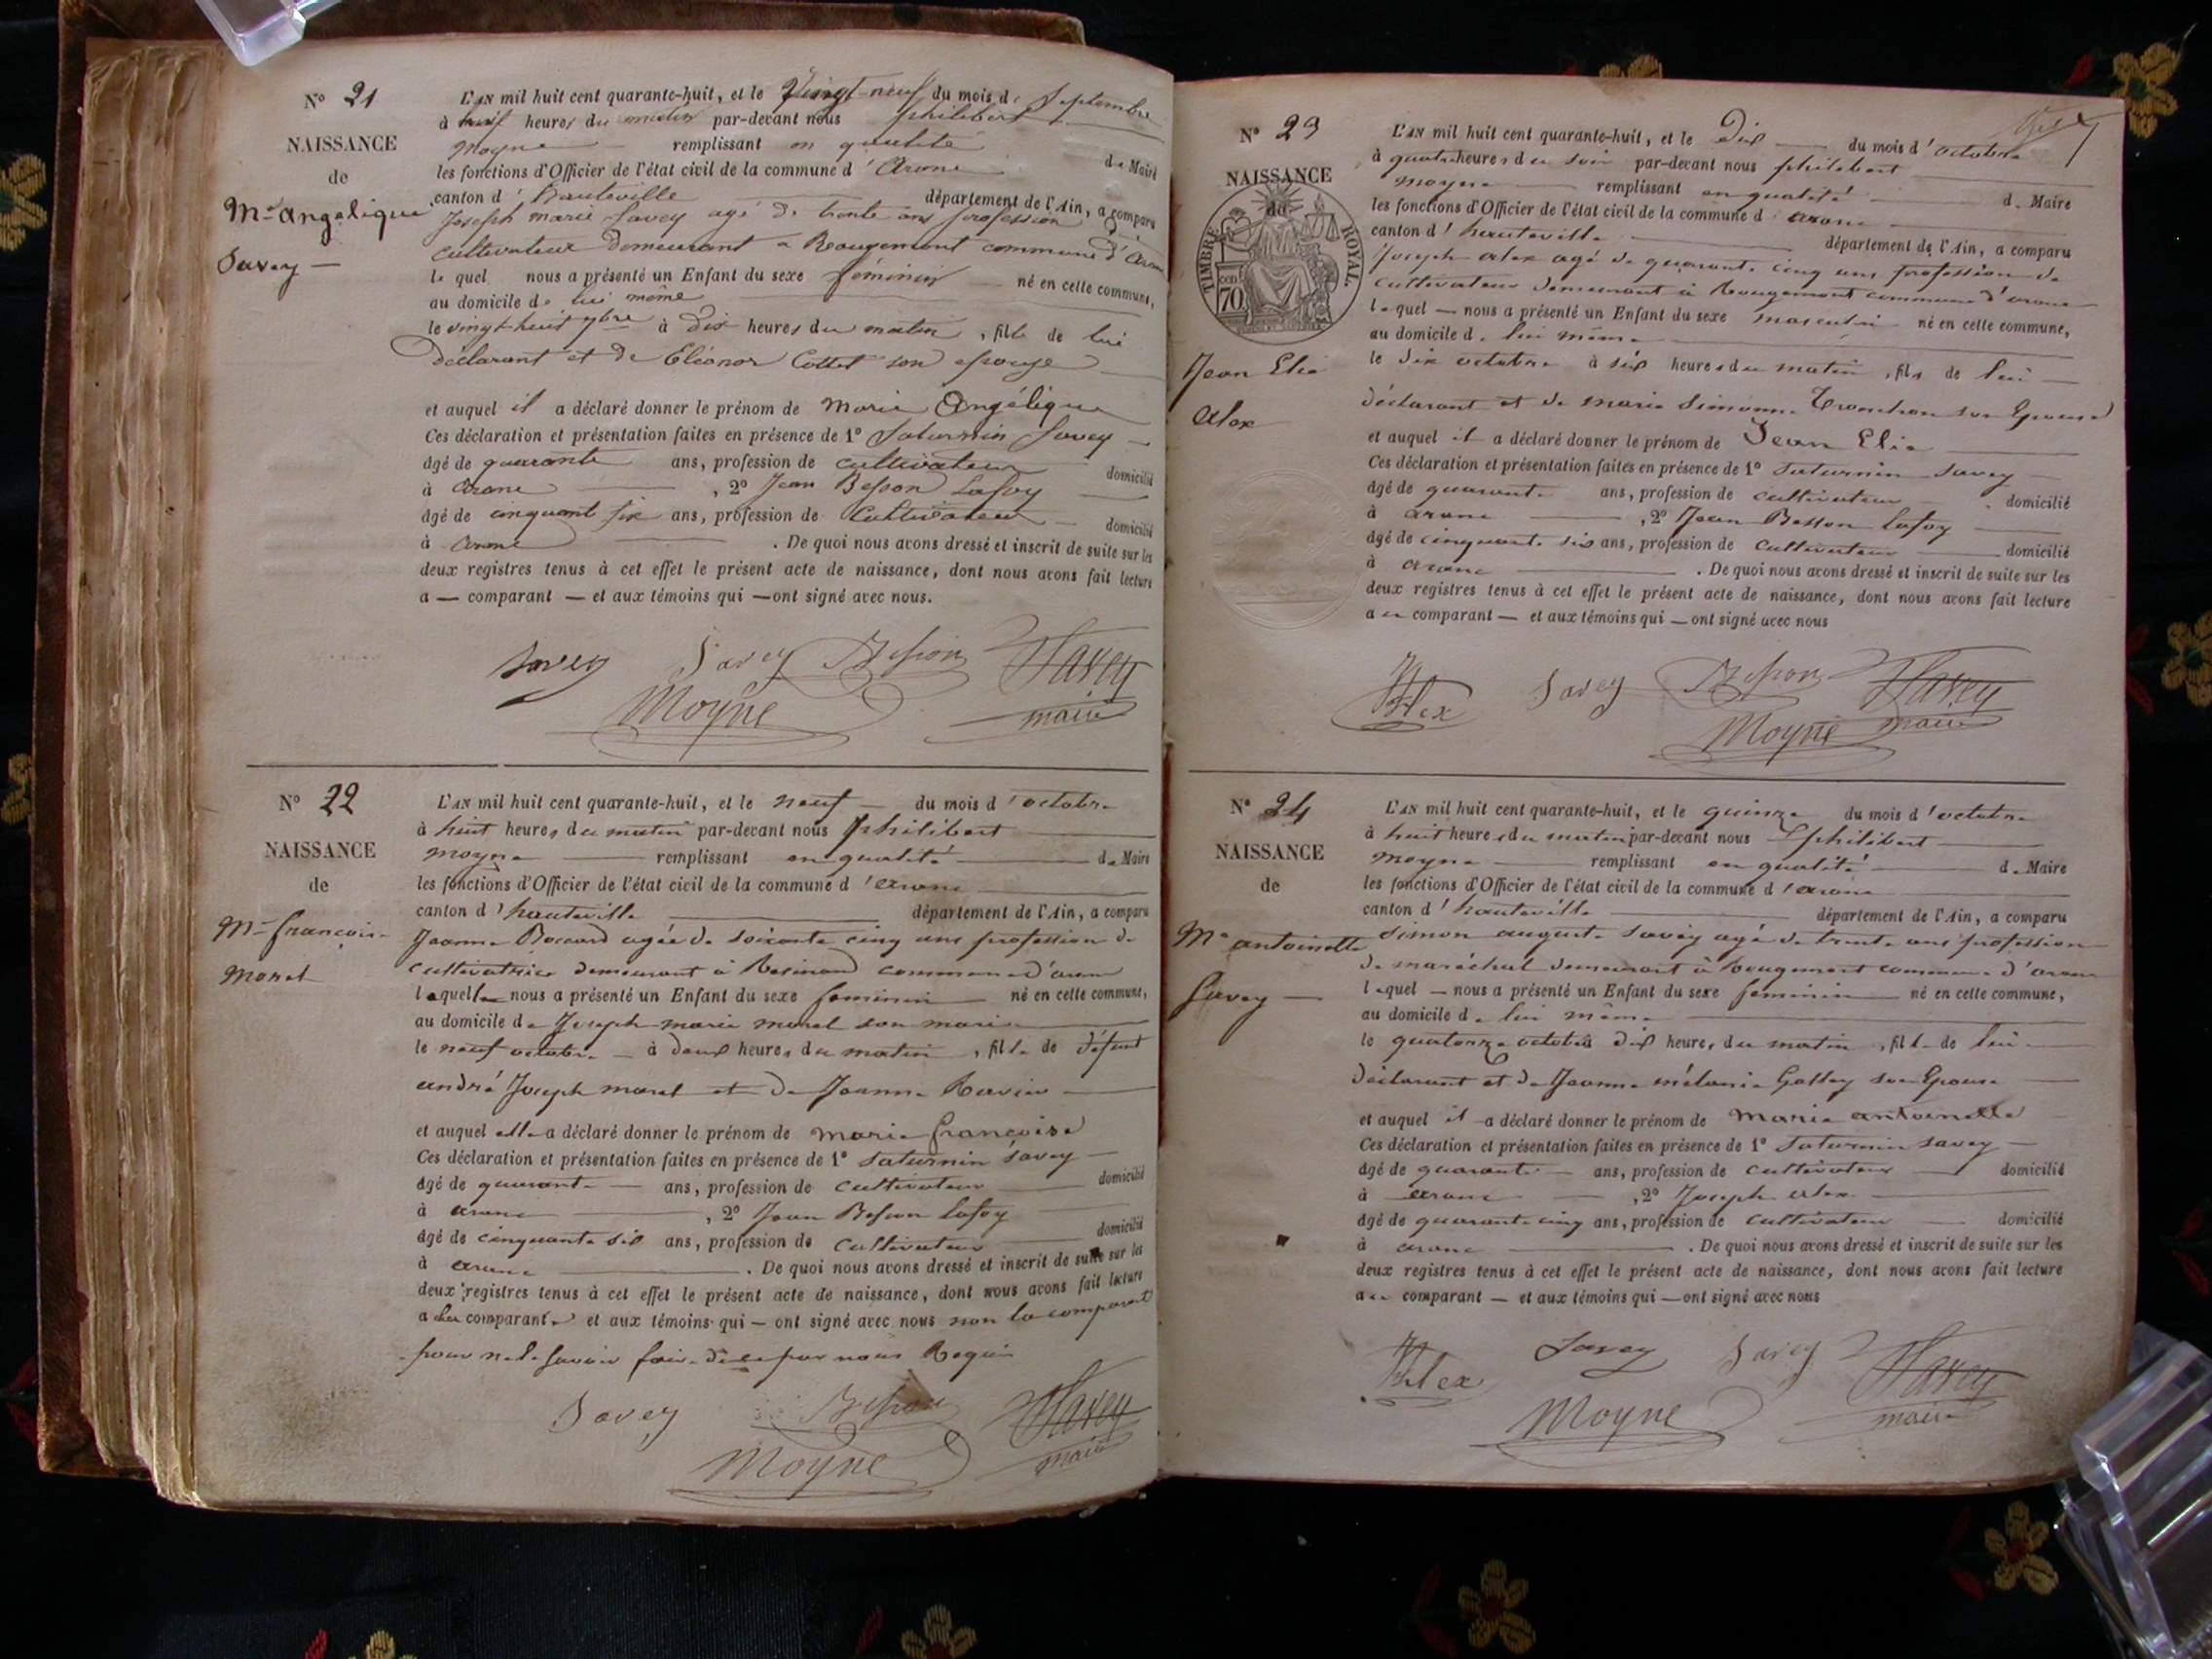 N° 21
NAISSANCE
de
Mie Angelique
Savey —
L'AN mil huit cent quarante-huit, et le Vingt-neuf du mois de Septembre
à huit heures du matin par-devant nous philibert
Moyne remplissant en qualité de Maire
les fonctions d'Officier de l'état civil de la commune d'Aranc
canton d'hauteville département de l'Ain, a comparu
Joseph marie Savey agé de trente ans profession de
cultivateur demeurant a Rougemont commune d'aranc
le quel nous a présenté un Enfant du sexe féminin né en cette commune,
au domicile de lui même
le vingt-huit 7bre à Dix heures du matin, fille de lui
déclarant et de Eléonor Cottet son epouse
et auquel il a déclaré donner le prénom de Marie Angélique
Ces déclaration et présentation faites en présence de 1° Saturnin Savey
âgé de quarante ans, profession de cultivateur domicilié
à Aranc , 2° Jean Besson Lafoy
âgé de cinquant six ans, profession de Cultivateur domicilié
à Aranc . De quoi nous avons dressé et inscrit de suite sur les
deux registres tenus à cet effet le présent acte de naissance, dont nous avons fait lecture
a — comparant — et aux témoins qui — ont signé avec nous.
Savey Savey Besson Savey
Moyne maire
N° 22
NAISSANCE
de
Mie françoise
Morel
L'AN mil huit cent quarante-huit, et le neuf du mois d'octobre
à huit heures du matin par-devant nous philibert
moyne remplissant en qualité de Maire
les fonctions d'Officier de l'état civil de la commune d'aranc
canton d'hauteville département de l'Ain, a comparu
Jeanne Boccard agée de soixante cinq ans profession de
cultivatrice demeurant à Resinand commune d'aranc
laquelle nous a présenté un Enfant du sexe feminin né en cette commune,
au domicile de Joseph marie morel son mari
le neuf octobre à deux heures du matin, fille de défunt
andré Joseph morel et de Jeanne Ravier
et auquel elle a déclaré donner le prénom de marie françoise
Ces déclaration et présentation faites en présence de 1° Saturnin Savey
âgé de quarante ans, profession de cultivateur domicilié
à aranc , 2° Jean Besson lafoy
âgé de cinquante six ans, profession de cultivateur domicilié
à aranc . De quoi nous avons dressé et inscrit de suite sur les
deux registres tenus à cet effet le présent acte de naissance, dont nous avons fait lecture
a comparante et aux témoins qui — ont signé avec nous non la comparant
pour ne le savoir faire de ce par nous Requis
Savey Besson Savey
Moyne maire
N° 23
NAISSANCE
de
TIMBRE ROYAL
70
Jean Elie
Alex
L'AN mil huit cent quarante-huit, et le Dix du mois d'octobre
à quatre heures du soir par-devant nous philibert
moyne remplissant en qualité de Maire
les fonctions d'Officier de l'état civil de la commune d'aranc
canton d'hauteville département de l'Ain, a comparu
Joseph alex agé de quarante cinq ans profession de
cultivateur demeurant à Rougemont commune d'aranc
lequel — nous a présenté un Enfant du sexe masculin né en cette commune,
au domicile de lui même
le dix octobre à six heures du matin, fils de lui
déclarant et de marie simonne Tronchon son Epouse
et auquel il a déclaré donner le prénom de Jean Elie
Ces déclaration et présentation faites en présence de 1° Saturnin Savey
âgé de quarante ans, profession de cultivateur domicilié
à aranc , 2° Jean Besson lafoy
âgé de cinquante six ans, profession de cultivateur domicilié
à aranc . De quoi nous avons dressé et inscrit de suite sur les
deux registres tenus à cet effet le présent acte de naissance, dont nous avons fait lecture
au comparant — et aux témoins qui — ont signé avec nous
Alex Savey Besson Savey
Moyne maire
N° 24
NAISSANCE
de
Mie antoinette
Savey —
L'AN mil huit cent quarante-huit, et le quinze du mois d'octobre
à huit heures du matin par-devant nous philibert
moyne remplissant en qualité de Maire
les fonctions d'Officier de l'état civil de la commune d'aranc
canton d'hauteville département de l'Ain, a comparu
Simon auguste Savey agé de trente ans profession
de maréchal demeurant à Rougemont commune d'aranc
lequel — nous a présenté un Enfant du sexe feminin né en cette commune,
au domicile de lui même
le quatorze octobre dix heures du matin, fille de lui
déclarant et de Jeanne mélanie son Epouse
et auquel il a déclaré donner le prénom de marie antoinette
Ces déclaration et présentation faites en présence de 1° Saturnin Savey
âgé de quarante ans, profession de cultivateur domicilié
à aranc , 2° Joseph alex
âgé de quarante cinq ans, profession de cultivateur domicilié
à aranc . De quoi nous avons dressé et inscrit de suite sur les
deux registres tenus à cet effet le présent acte de naissance, dont nous avons fait lecture
au comparant — et aux témoins qui — ont signé avec nous
Alex Savey Savey Savey
Moyne maire